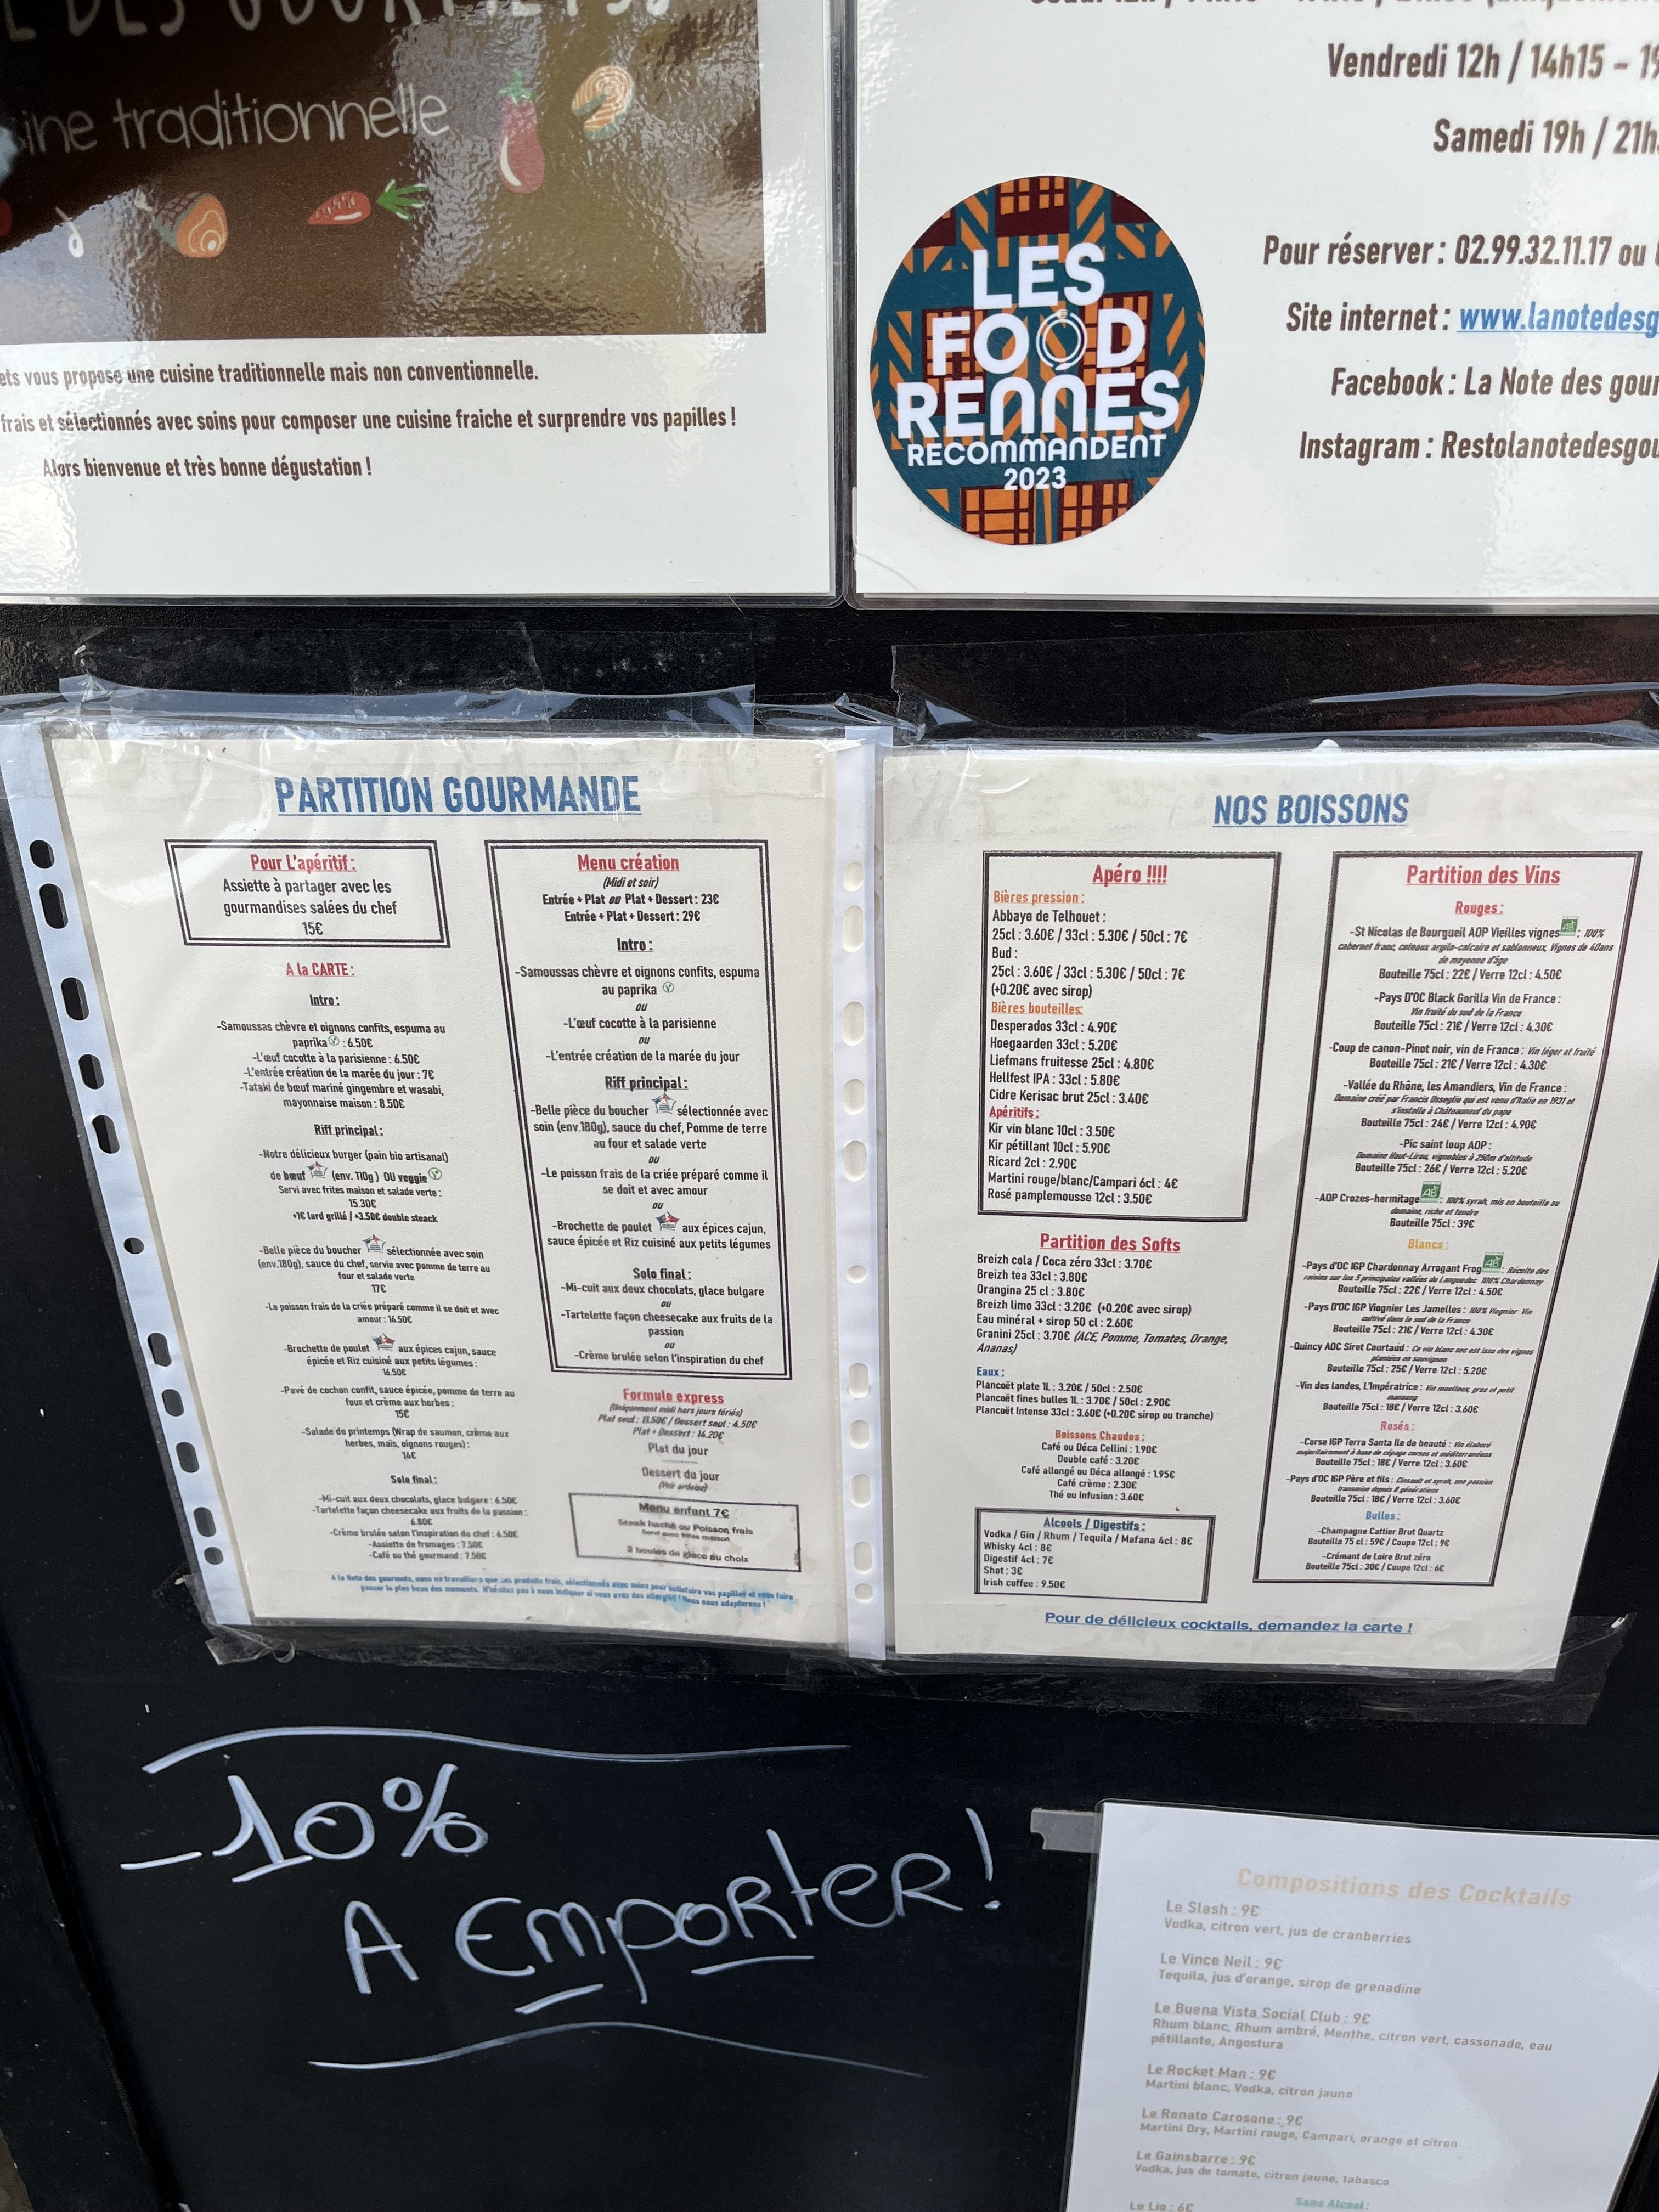 DES GOURMETS
ine traditionnelle
ets vous propose une cuisine traditionnelle mais non conventionnelle.
frais et sélectionnés avec soins pour composer une cuisine fraiche et surprendre vos papilles !
Alors bienvenue et très bonne dégustation !
Vendredi 12h / 14h15 – 19
Samedi 19h / 21h
Pour réserver : 02.99.32.11.17 ou
Site internet : www.lanotedesg
Facebook : La Note des gour
Instagram : Restolanotedesgou
LES
FOOD
RENNES
RECOMMANDENT
2023
PARTITION GOURMANDE
Pour L'apéritif :
Assiette à partager avec les
gourmandises salées du chef
15€
A la CARTE :
Intro :
-Samoussas chèvre et oignons confits, espuma au
paprika : 6.50€
-L'œuf cocotte à la parisienne : 6.50€
-L'entrée création de la marée du jour : 7€
-Tataki de bœuf mariné gingembre et wasabi,
mayonnaise maison : 8.50€
Riff principal :
-Notre délicieux burger (pain bio artisanal)
de bœuf (env. 110g) OU veggie
Servi avec frites maison et salade verte :
15.30€
+1€ lard grillé / +3.50€ double steack
-Belle pièce du boucher sélectionnée avec soin
(env.180g), sauce du chef, servie avec pomme de terre au
four et salade verte
17€
-Le poisson frais de la criée préparé comme il se doit et avec
amour : 16.50€
-Brochette de poulet aux épices cajun, sauce
épicée et Riz cuisiné aux petits légumes :
16.50€
-Pavé de cochon confit, sauce épicée, pomme de terre au
four et crème aux herbes :
15€
-Salade du printemps (Wrap de saumon, crème aux
herbes, maïs, oignons rouges) :
14€
Solo final :
-Mi-cuit aux deux chocolats, glace bulgare : 6.50€
-Tartelette façon cheesecake aux fruits de la passion :
6.80€
-Crème brulée selon l'inspiration du chef : 6.50€
-Assiette de fromages : 7.50€
-Café ou thé gourmand : 7.50€
Menu création
(Midi et soir)
Entrée + Plat ou Plat + Dessert : 23€
Entrée + Plat + Dessert : 29€
Intro :
-Samoussas chèvre et oignons confits, espuma
au paprika
ou
-L'œuf cocotte à la parisienne
ou
-L'entrée création de la marée du jour
Riff principal :
-Belle pièce du boucher sélectionnée avec
soin (env.180g), sauce du chef, Pomme de terre
au four et salade verte
ou
-Le poisson frais de la criée préparé comme il
se doit et avec amour
ou
-Brochette de poulet aux épices cajun,
sauce épicée et Riz cuisiné aux petits légumes
Solo final :
-Mi-cuit aux deux chocolats, glace bulgare
ou
-Tartelette façon cheesecake aux fruits de la
passion
ou
-Crème brulée selon l'inspiration du chef
Formule express
(Uniquement midi hors jours fériés)
Plat seul : 11.50€ / Dessert seul : 4.50€
Plat + Dessert : 14.20€
Plat du jour
Dessert du jour
(Voir ardoise)
Menu enfant 7€
Steak haché ou Poisson frais
Servi avec frites maison
2 boules de glace au choix
A la Note des gourmets, nous ne travaillons que des produits frais, sélectionnés avec soins pour satisfaire vos papilles et vous faire
passer le plus beau des moments. N'hésitez pas à nous indiquer si vous avez des allergies ! Nous nous adapterons !
NOS BOISSONS
Apéro !!!!
Bières pression :
Abbaye de Telhouet :
25cl : 3.60€ / 33cl : 5.30€ / 50cl : 7€
Bud :
25cl : 3.60€ / 33cl : 5.30€ / 50cl : 7€
(+0.20€ avec sirop)
Bières bouteilles:
Desperados 33cl : 4.90€
Hoegaarden 33cl : 5.20€
Liefmans fruitesse 25cl : 4.80€
Hellfest IPA : 33cl : 5.80€
Cidre Kerisac brut 25cl : 3.40€
Apéritifs :
Kir vin blanc 10cl : 3.50€
Kir pétillant 10cl : 5.90€
Ricard 2cl : 2.90€
Martini rouge/blanc/Campari 6cl : 4€
Rosé pamplemousse 12cl : 3.50€
Partition des Softs
Breizh cola / Coca zéro 33cl : 3.70€
Breizh tea 33cl : 3.80€
Orangina 25 cl : 3.80€
Breizh limo 33cl : 3.20€ (+0.20€ avec sirop)
Eau minéral + sirop 50 cl : 2.60€
Granini 25cl : 3.70€ (ACE, Pomme, Tomates, Orange,
Ananas)
Eaux :
Plancoët plate 1L : 3.20€ / 50cl : 2.50€
Plancoët fines bulles 1L : 3.70€ / 50cl : 2.90€
Plancoët Intense 33cl : 3.60€ (+0.20€ sirop ou tranche)
Boissons Chaudes :
Café ou Déca Cellini : 1.90€
Double café : 3.20€
Café allongé ou Déca allongé : 1.95€
Café crème : 2.30€
Thé ou Infusion : 3.60€
Alcools / Digestifs :
Vodka / Gin / Rhum / Tequila / Mafana 4cl : 8€
Whisky 4cl : 8€
Digestif 4cl : 7€
Shot : 3€
Irish coffee : 9.50€
Partition des Vins
Rouges :
-St Nicolas de Bourgueil AOP Vieilles vignes AB : 100%
cabernet franc, coteaux argilo-calcaire et sablonneux, Vignes de 40ans
de moyenne d'âge
Bouteille 75cl : 22€ / Verre 12cl : 4.50€
-Pays D'OC Black Gorilla Vin de France :
Vin fruité du sud de la France
Bouteille 75cl : 21€ / Verre 12cl : 4.30€
-Coup de canon-Pinot noir, vin de France : Vin léger et fruité
Bouteille 75cl : 21€ / Verre 12cl : 4.30€
-Vallée du Rhône, les Amandiers, Vin de France :
Domaine créé par Francis Usseglio qui est venu d'Italie en 1931 et
s'installe à Châteauneuf du pape
Bouteille 75cl : 24€ / Verre 12cl : 4.90€
-Pic saint loup AOP :
Domaine Haut-Lirou, vignobles à 250m d'altitude
Bouteille 75cl : 26€ / Verre 12cl : 5.20€
-AOP Crozes-hermitage AB : 100% syrah, mis en bouteille au
domaine, riche et tendre
Bouteille 75cl : 39€
Blancs :
-Pays d'OC IGP Chardonnay Arrogant Frog AB : Récolte des
raisins sur les 5 principales vallées du Languedoc 100% Chardonnay
Bouteille 75cl : 22€ / Verre 12cl : 4.50€
-Pays D'OC IGP Viognier Les Jamelles : 100% Viognier Vin
cultivé dans le sud de la France
Bouteille 75cl : 21€ / Verre 12cl : 4.30€
-Quincy AOC Siret Courtaud : Ce vin blanc sec est issu des vignes
plantées en sauvignon
Bouteille 75cl : 25€ / Verre 12cl : 5.20€
-Vin des landes, L'Impératrice : Vin moelleux, gros et petit
manseng
Bouteille 75cl : 18€ / Verre 12cl : 3.60€
Rosés :
-Corse IGP Terra Santa Ile de beauté : Vin élaboré
majoritairement à base de cépage corses et méditerranéens
Bouteille 75cl : 18€ / Verre 12cl : 3.60€
-Pays d'OC IGP Père et fils : Cinsault et syrah, une passion
transmise depuis 8 générations
Bouteille 75cl : 18€ / Verre 12cl : 3.60€
Bulles :
-Champagne Cattier Brut Quartz
Bouteille 75 cl : 59€ / Coupe 12cl : 9€
-Crémant de Loire Brut zéro
Bouteille 75cl : 30€ / Coupe 12cl : 6€
Pour de délicieux cocktails, demandez la carte !
-10%
A EMPORTER!
Compositions des Cocktails
Le Slash : 9€
Vodka, citron vert, jus de cranberries
Le Vince Neil : 9€
Tequila, jus d'orange, sirop de grenadine
Le Buena Vista Social Club : 9€
Rhum blanc, Rhum ambré, Menthe, citron vert, cassonade, eau
pétillante, Angostura
Le Rocket Man : 9€
Martini blanc, Vodka, citron jaune
Le Renato Carosone : 9€
Martini Dry, Martini rouge, Campari, orange et citron
Le Gainsbarre : 9€
Vodka, jus de tomate, citron jaune, tabasco
Sans Alcool :
Le Lio : 6€